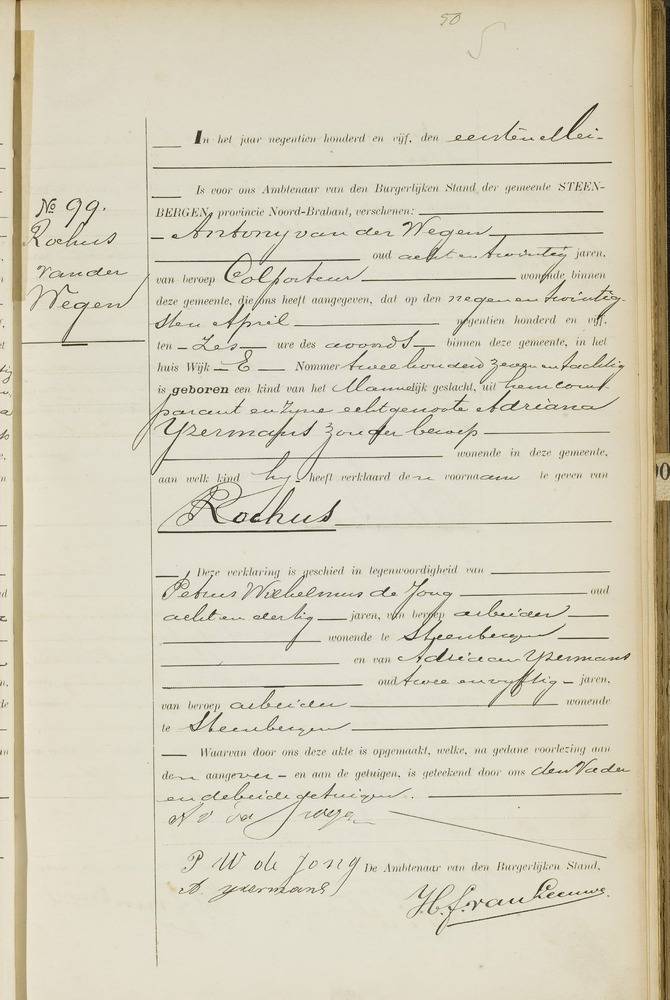 50
In het jaar negentien honderd en vijf, den eersten Mei-
Is voor ons Ambtenaar van den Burgerlijken Stand der gemeente STEEN-
BERGEN, provincie Noord-Brabant, verschenen:
No 99.
Rochus
van der
Wegen
Antony van der Wegen
oud acht en twintig jaren,
van beroep Colporteur wonende binnen
deze gemeente, die ons heeft aangegeven, dat op den negen en twintig-
sten April negentien honderd en vijf,
ten Zes ure des avonds binnen deze gemeente, in het
huis Wijk E Nommer twee honderd zeven en tachtig
is geboren een kind van het Mannelijk geslacht, uit hem com-
parant en zijne echtgenoote Adriana
Yzermans zonder beroep
wonende in deze gemeente,
aan welk kind hij heeft verklaard den voornaam te geven van
Rochus
Deze verklaring is geschied in tegenwoordigheid van
Petrus Wilhelmus de Jong oud
acht en dertig jaren, van beroep arbeider
wonende te Steenbergen
en van Adriaan Yzermans
oud twee en vyftig jaren,
van beroep arbeider wonende
te Steenbergen
Waarvan door ons deze akte is opgemaakt, welke, na gedane voorlezing aan
den aangever en aan de getuigen, is geteekend door ons den Vader
en de beide getuigen.
A v der Wegen
P W de Jong De Ambtenaar van den Burgerlijken Stand,
A. yzermans
H. f. van Leeuwe